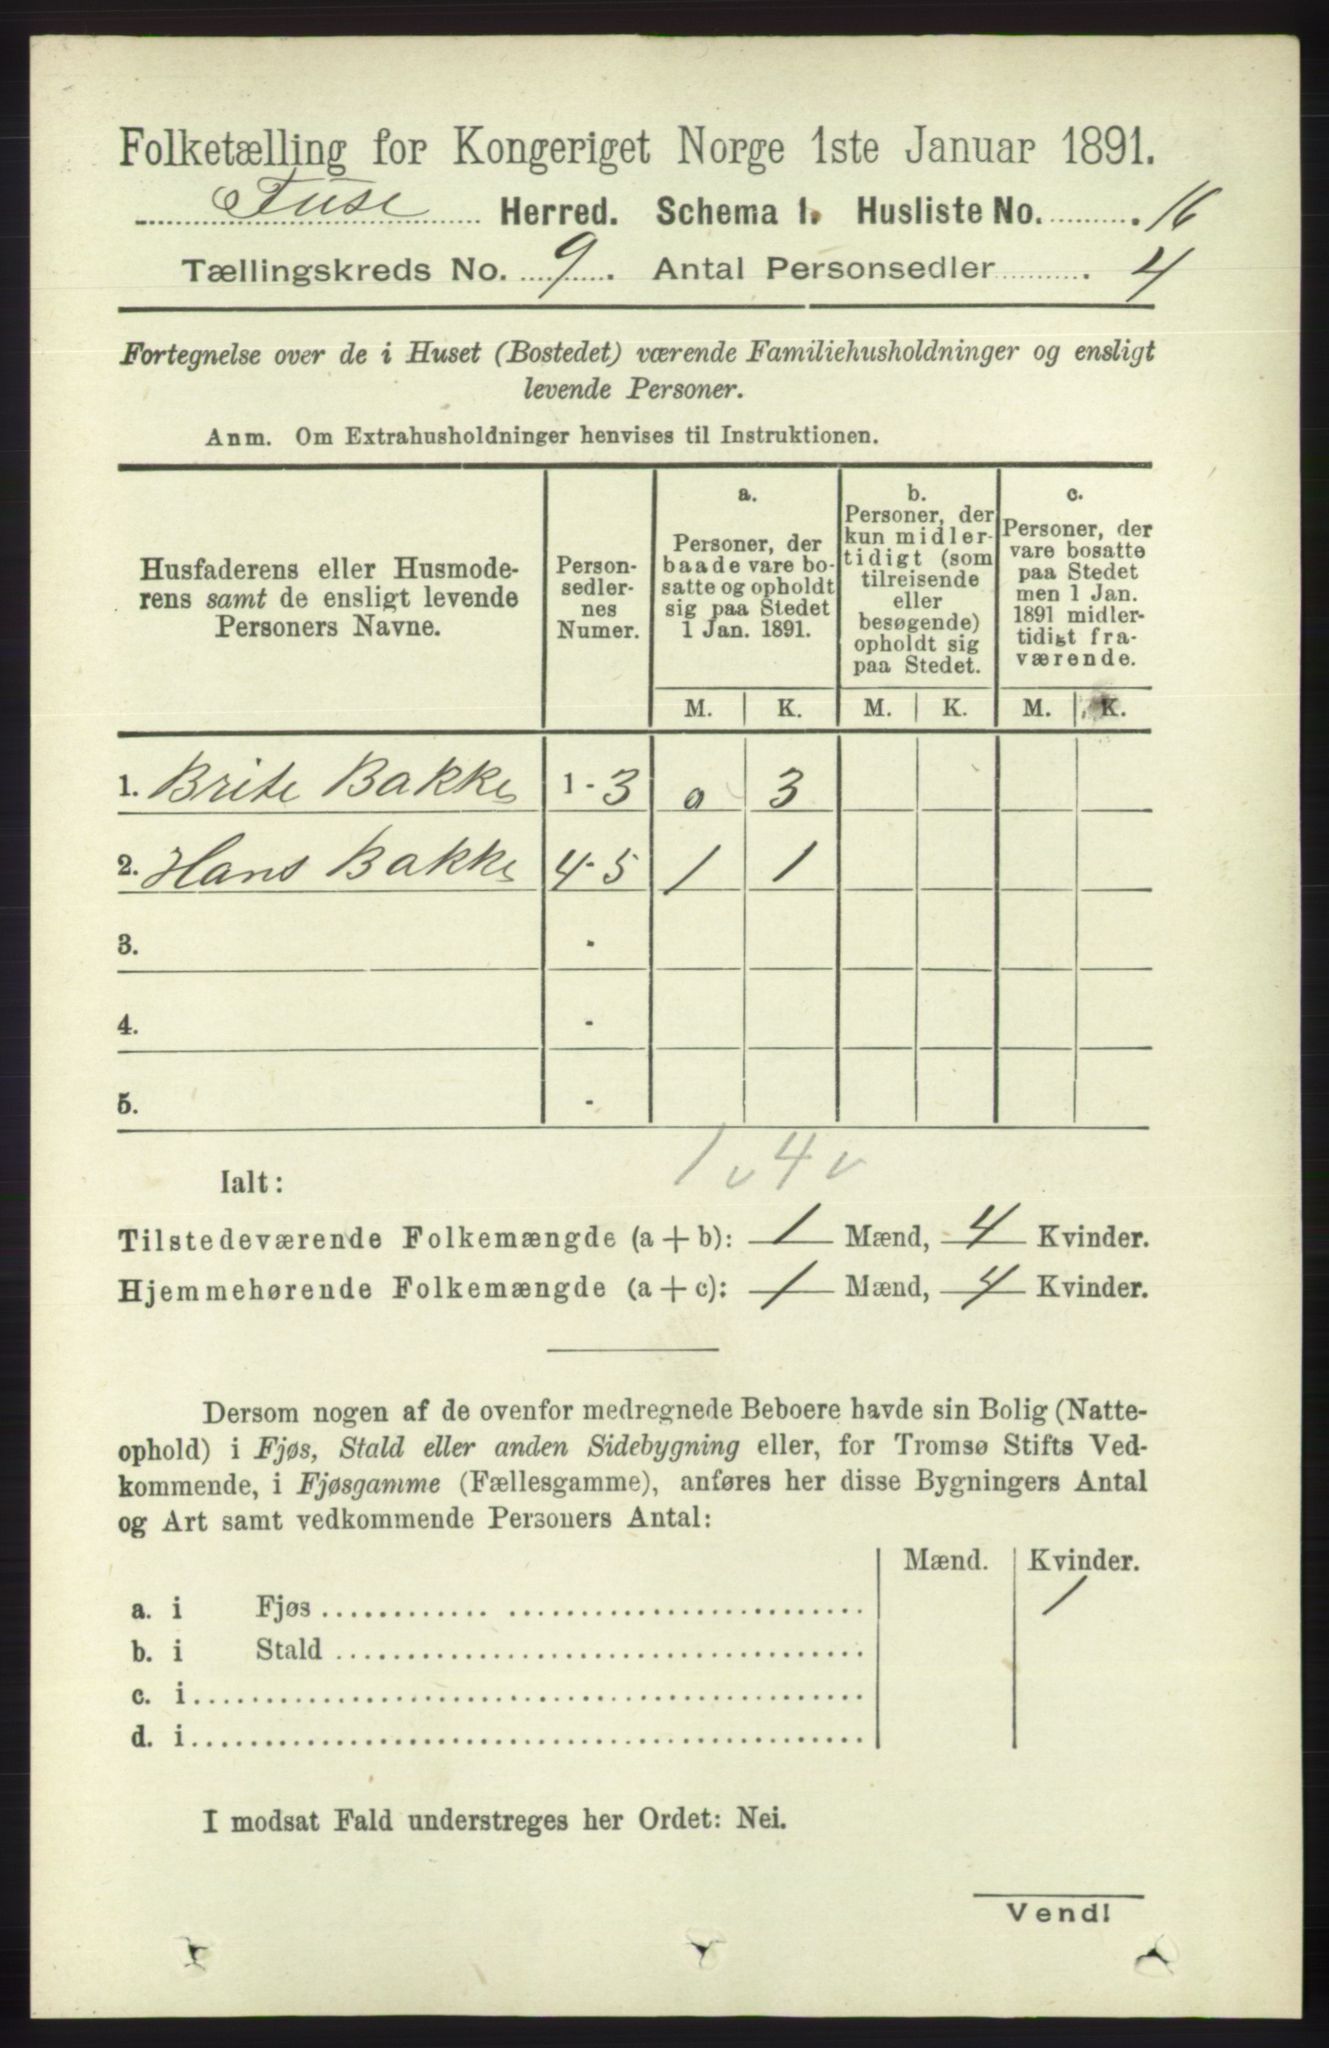 Folketælling for Kongeriget Norge 1ste Januar 1891.
Fuse Herred. Schema 1. Husliste No. 16
Tællingskreds No. 9. Antal Personsedler 4
Fortegnelse over de i Huset (Bostedet) værende Familiehusholdninger og ensligt
levende Personer.
Anm. Om Extrahusholdninger henvises til Instruktionen.
Husfaderens eller Husmode-
rens samt de ensligt levende
Personers Navne.
Person-
sedler-
nes
Numer.
a.
Personer, der
baade vare bo-
satte og opholdt
sig paa Stedet
1 Jan. 1891.
b.
Personer, der
kun midler-
tidigt (som
tilreisende
eller
besøgende)
opholdt sig
paa Stedet.
c.
Personer, der
vare bosatte
paa Stedet
men 1 Jan.
1891 midler-
tidigt fra-
værende.
M. K. M. K. M. K.
1. Brite Bakke 1-3 0 3
2. Hans Bakke 4-5 1 1
3. -
4. -
5. -
1 v 4 v
Ialt:
Tilstedeværende Folkemængde (a + b): 1 Mænd, 4 Kvinder.
Hjemmehørende Folkemængde (a + c): 1 Mænd, 4 Kvinder.
Dersom nogen af de ovenfor medregnede Beboere havde sin Bolig (Natte-
ophold) i Fjøs, Stald eller anden Sidebygning eller, for Tromsø Stifts Ved-
kommende, i Fjøsgamme (Fællesgamme), anføres her disse Bygningers Antal
og Art samt vedkommende Personers Antal:
Mænd. Kvinder.
a. i Fjøs 1
b. i Stald
c. i
d. i
I modsat Fald understreges her Ordet: Nei.
Vend!